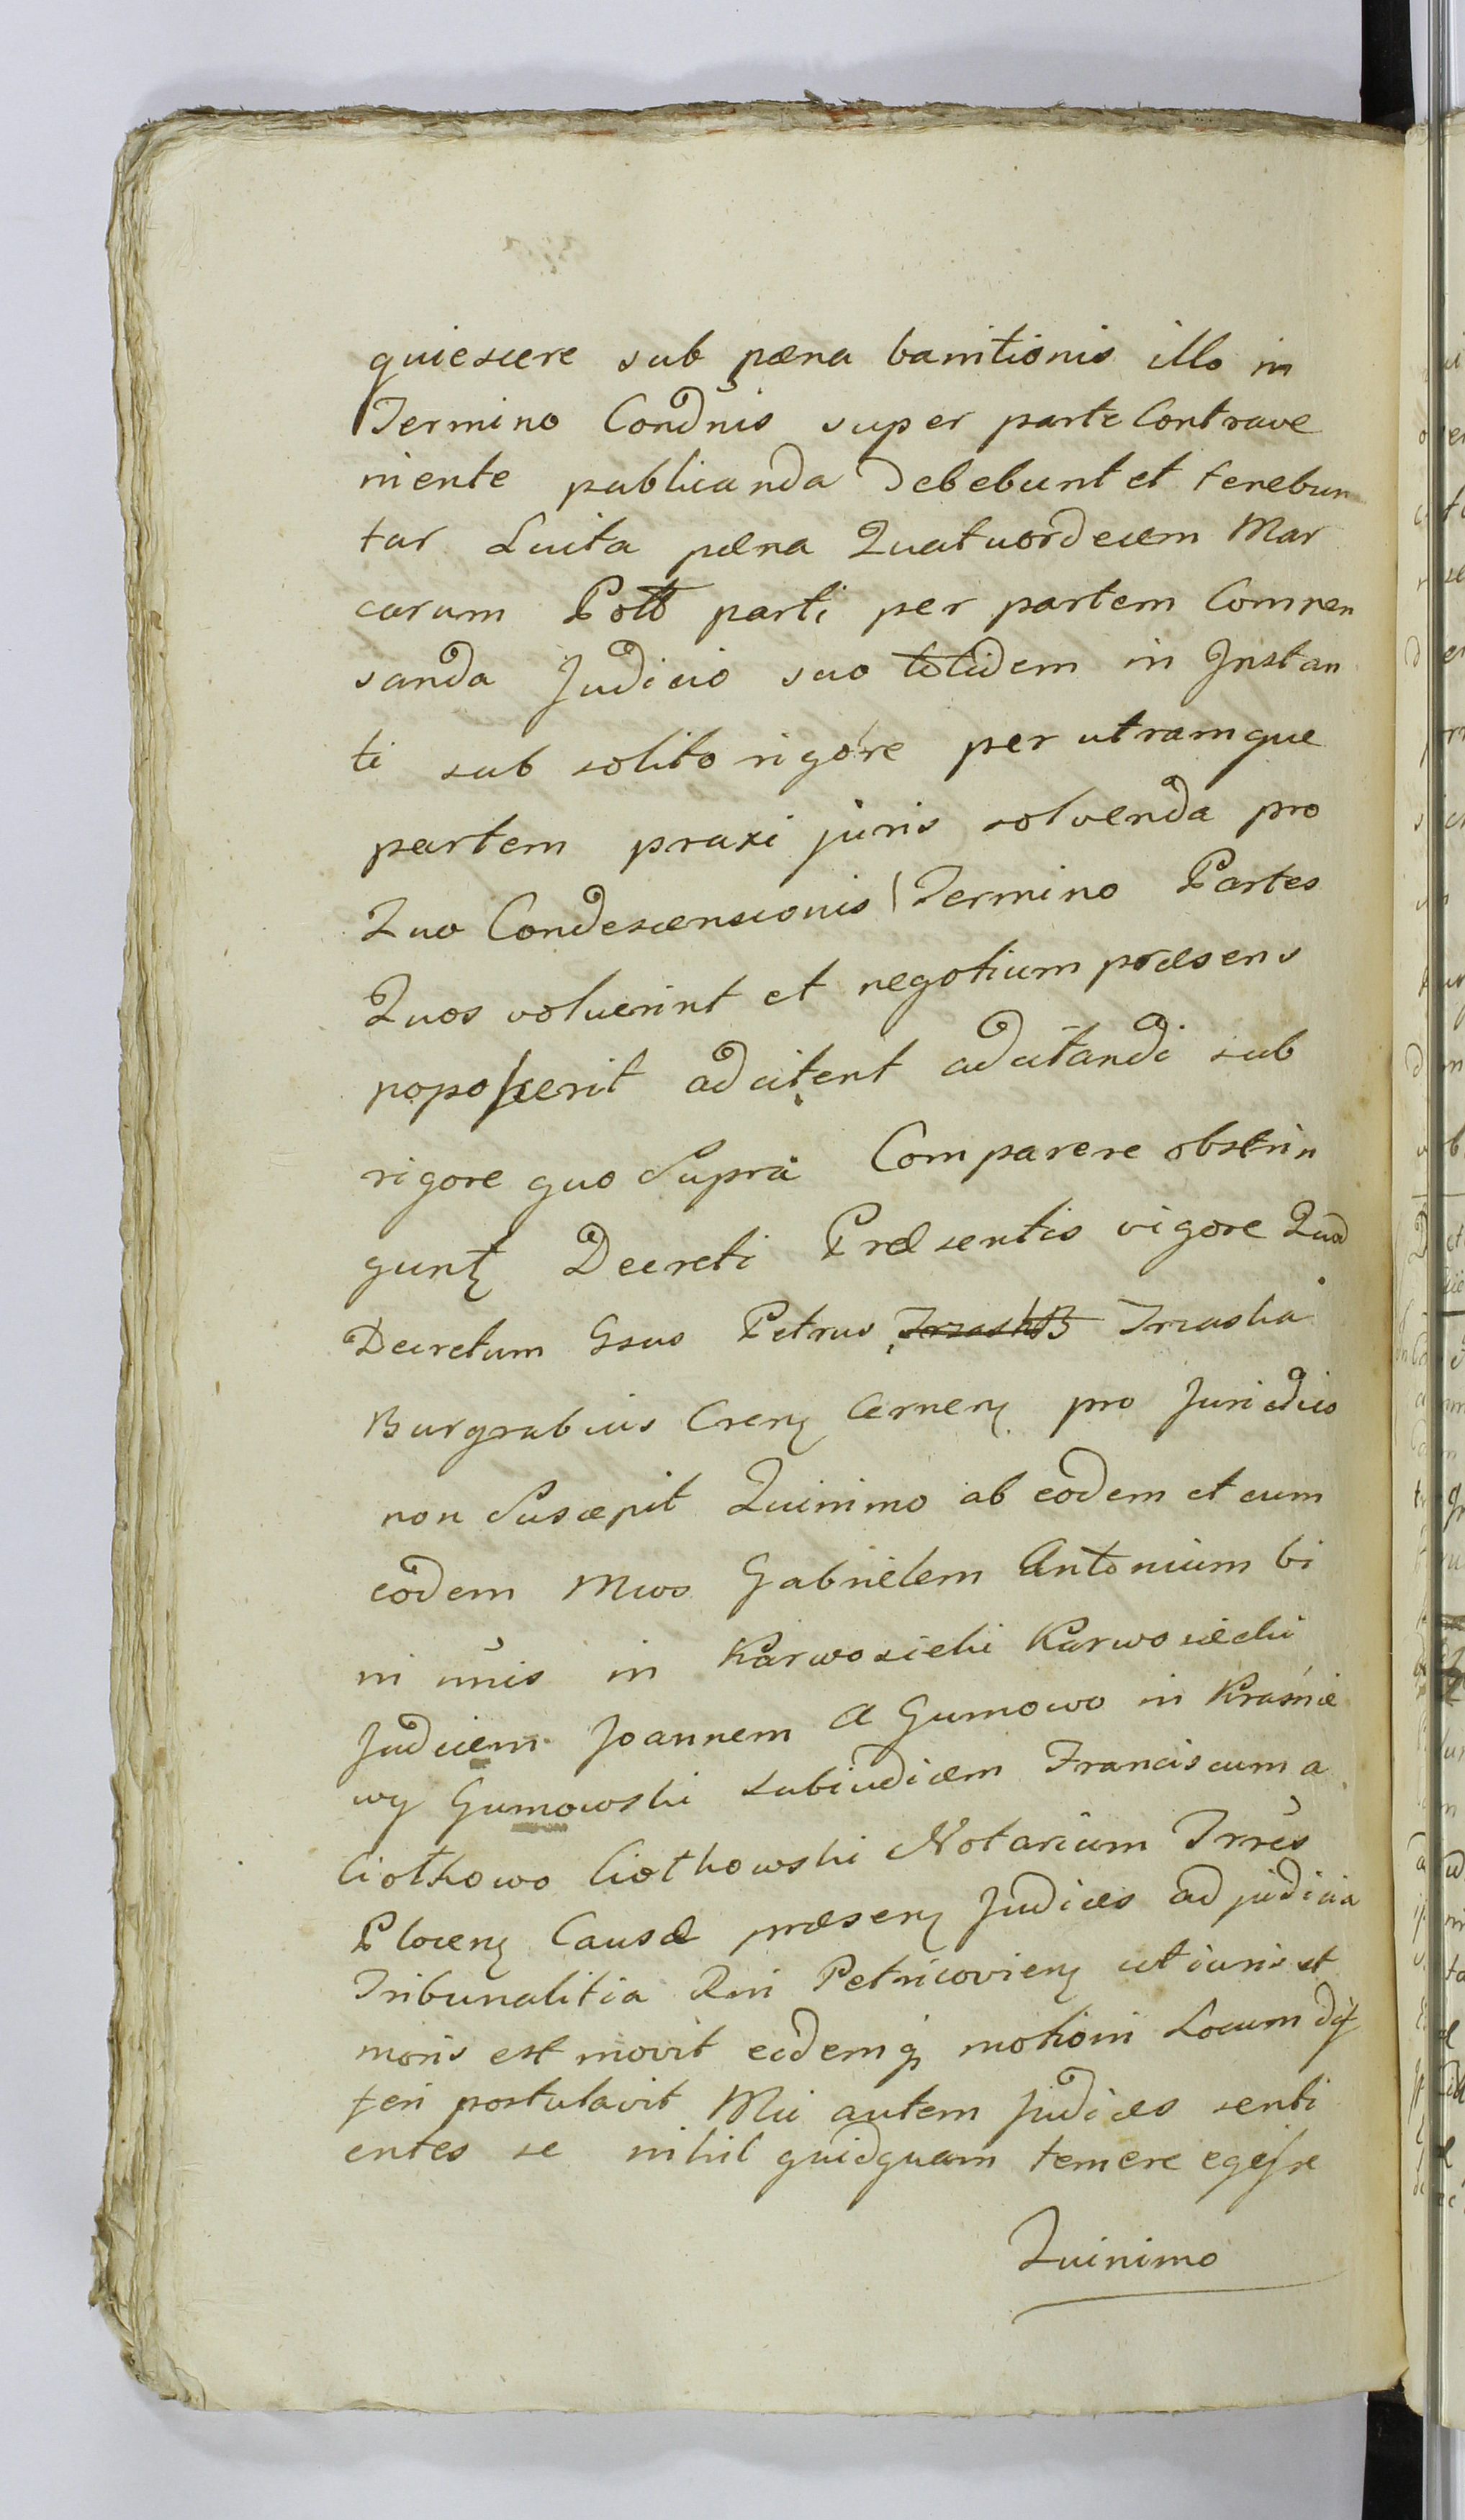 quiescere sub pæna banitionis illo in
Termino Condnis super parte Contrave
niente publicanda debebunt et tenebun
tur Luita pæna Quatuordecem Mar
carum Poll parti per partem Compen
sanda Judicio suo totidem in Instan
ti sub solito rigore per utramque
partem praxi juris solvenda pro
Quo Condescensionis Termino Partes
Quos voluerint et negotium præsens
poposcerit adcitent adcitandi sub
rigore quo Supra Comparere obstrin
gunt Decreti Præsentis vigore Quod
Decretum Gsus Petrus Trzaska
Burgrabius Cren Cernen pro Juridico
non Suscepit Quinimo ab eodem et cum
eodem Mcos Gabrielem Antonium bi
ni nnis in Karwosieki Karwosiecki
Judicem Joannem A Gumowo in Kraśnie
wy Gumowski Subiudicem Franciscum a
Ciołkowo Ciołkowski Notarium Trres
Plocen Causæ præsen Judices ad judicia
Tribunalitia Rni Petricovien ut iuris et
moris est movit eidemq motioni Locum dif
feri postulavit Mci autem Judices senti
entes se nihil quidquam temere egisse
Quinimo